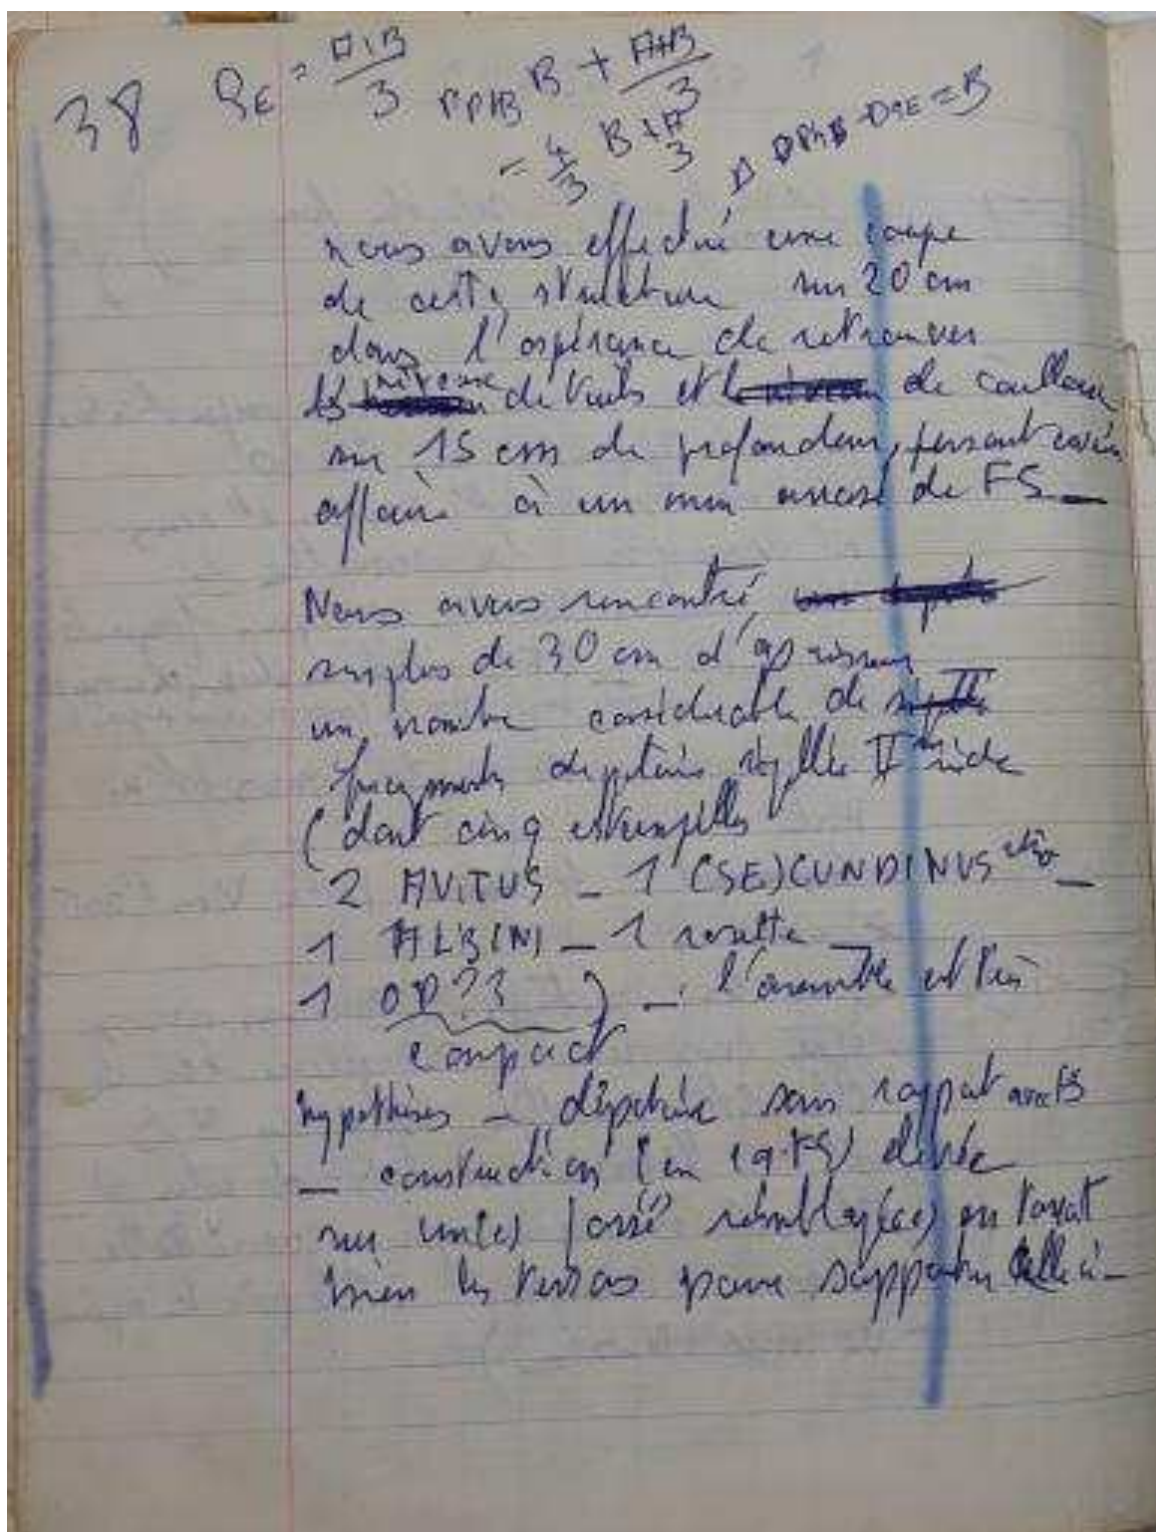 38 QE = A+B/3 PPHB B + A+B/3
= 4/3 B + A/3 = B
nous avons effectué une coupe
de cette structure sur 20 cm
dans l'espérance de retrouver
les niveaux de tuiles et de cailloux
sur 15 cm de profondeur, pensant avoir
affaire à un mur arasé de FS _
Nous avons rencontré
sur plus de 30 cm d'épaisseur
un nombre considérable de
fragments de poterie sigillée II siècle
(dont cinq estampilles
2 AVITUS _ 1 (SE)CUNDINUS _
1 ALBINI _ 1 rosette _
1 OP?? ) _ l'ensemble est très
compact
hypothèses _ dépotoir sans rapport avec FS
_ construction (en FS) élevée
sur un(e) fossé remblayé(e)
les tessons pour supporter celle ci _